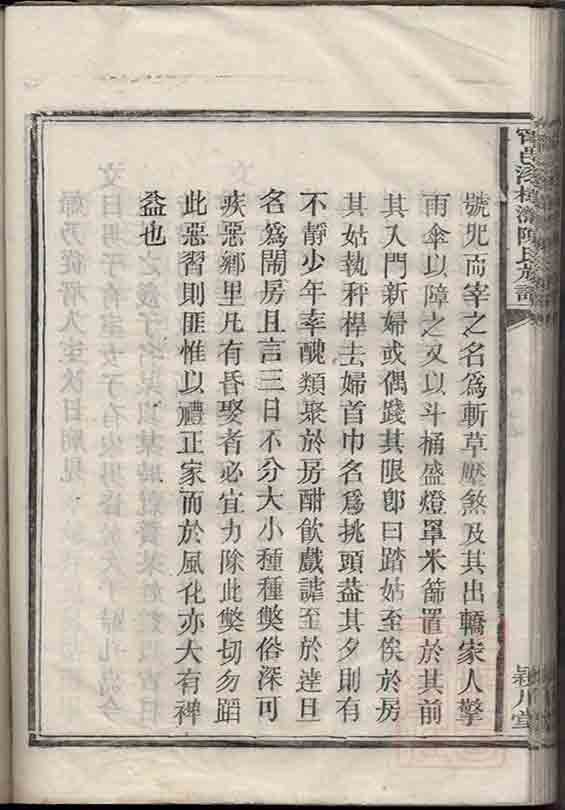 號咒而宰之名爲斬草壓煞及其出轎家人擎
雨傘以障之又以斗桶盛燈罩米篩置於其前
其入門新婦或偶踐其限卽曰踏姑至俟於房
其姑執秤桿去婦首巾名爲挑頭益其夕則有
不靜少年率醜類聚於房酣飲戲謔至於達旦
名爲鬧房且言三日不分大小種種獘俗深可
疾惡鄉里凡有昏娶者必宜力除此獘切勿蹈
此惡習則匪惟以禮正家而於風化亦大有裨
益也
潁川堂